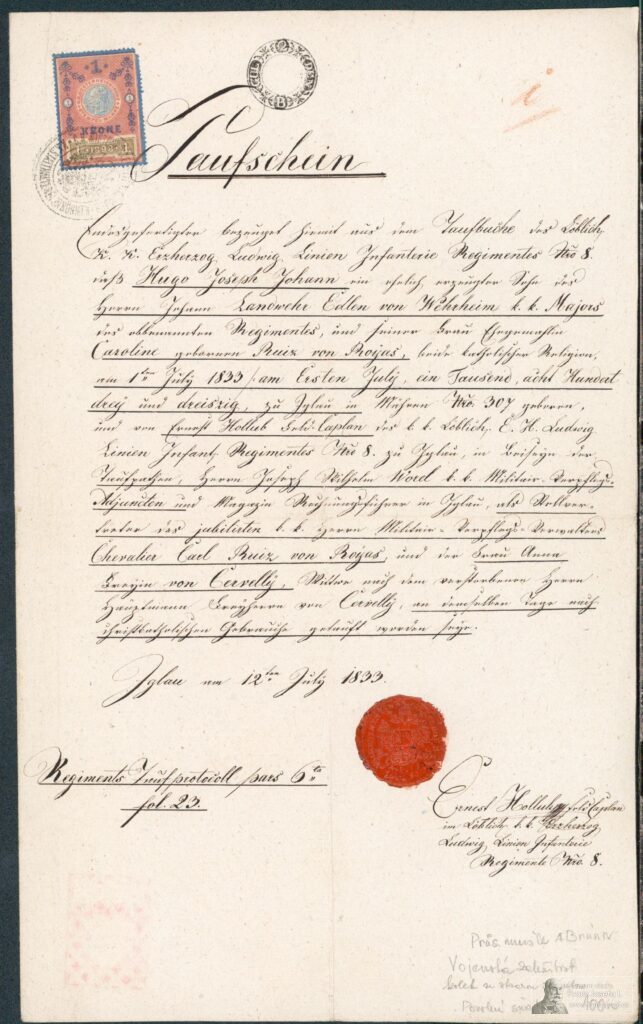 1
KRONE
Taufschein
Endesgefertigter bezeuget hiemit aus dem Taufbuche des Löblich.
K. K. Erzherzog Ludwig Linien Infanterie Regimentes Nro 8.
daß Hugo Joseph Johann ein ehelich erzeugter Sohn des
Herrn Johann Landwehr Edlen von Wehrheim k. k. Majors
des obbenannten Regimentes, und seiner Frau Ehegemahlin
Caroline gebornen Ruiz von Roxas, beide katholischer Religion,
am 1ten July 1833 /: am Ersten July, ein Tausend, acht Hundert
drey und dreiszig, zu Iglau in Mähren Nro. 307 geboren,
und von Ernest Hollub Feld-Caplan des k. k. Löblich. E. H. Ludwig
Linien Infant. Regimentes Nro 8. zu Iglau, in Beiseyn der
Taufpathen, Herrn Joseph Wilhelm Word k. k. Militair-Verpflegs-
Adjuncten und Magazin Rechnungsführer in Iglau, als Stellver-
treter des jubilirten k. k. Herrn Militair-Verpflegs-Verwalters
Chevalier Carl Ruiz von Roxas, und der Frau Anna
Freyin von Cervelly, Wittwe nach dem verstorbenen Herrn
Hauptmann Freyherrn von Cervelly, an demselben Tage nach
christkatholischen Gebrauche getauft worden seye.
Iglau am 12ten July 1833.
Regiments Taufprotocoll pars 6ta
fol. 23.
Ernest Hollub Feld-Caplan
im Löblich. k. k. Erzherzog
Ludwig Linien Infanterie
Regimente Nro. 8.
Vojenská
kolek